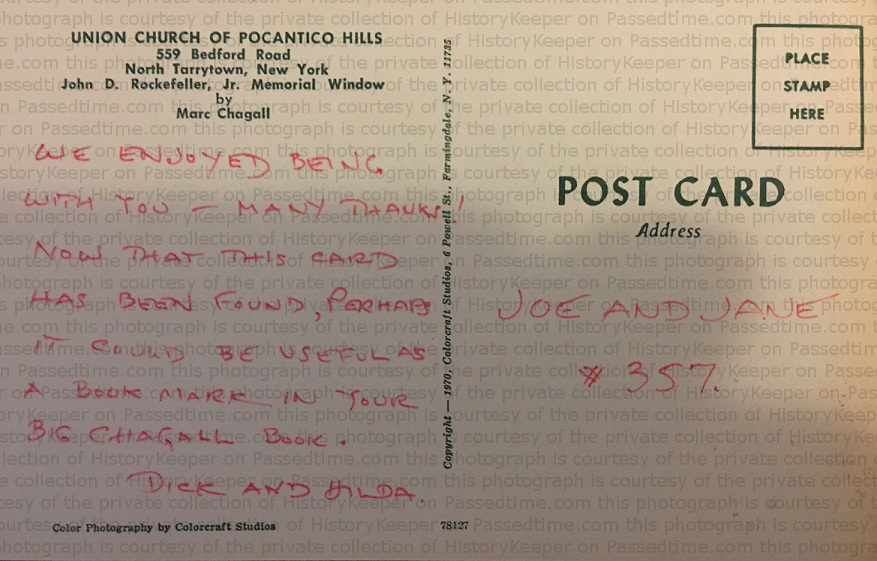 UNION CHURCH OF POCANTICO HILLS
559 Bedford Road
North Tarrytown, New York
John D. Rockefeller, Jr. Memorial Window
by
Marc Chagall
WE ENJOYED BEING
WITH YOU — MANY THANKS!
NOW THAT THIS CARD
HAS BEEN FOUND, PERHAPS
IT COULD BE USEFUL AS
A BOOK MARK IN YOUR
BIG CHAGALL BOOK.
DICK AND HILDA.
Color Photography by Colorcraft Studios
Copyright — 1970, Colorcraft Studios, 6 Powell St., Farmingdale, N. Y. 11735
78127
PLACE
STAMP
HERE
POST CARD
Address
JOE AND JANE
# 357.
this photograph is courtesy of the private collection of HistoryKeeper on Passedtime.com